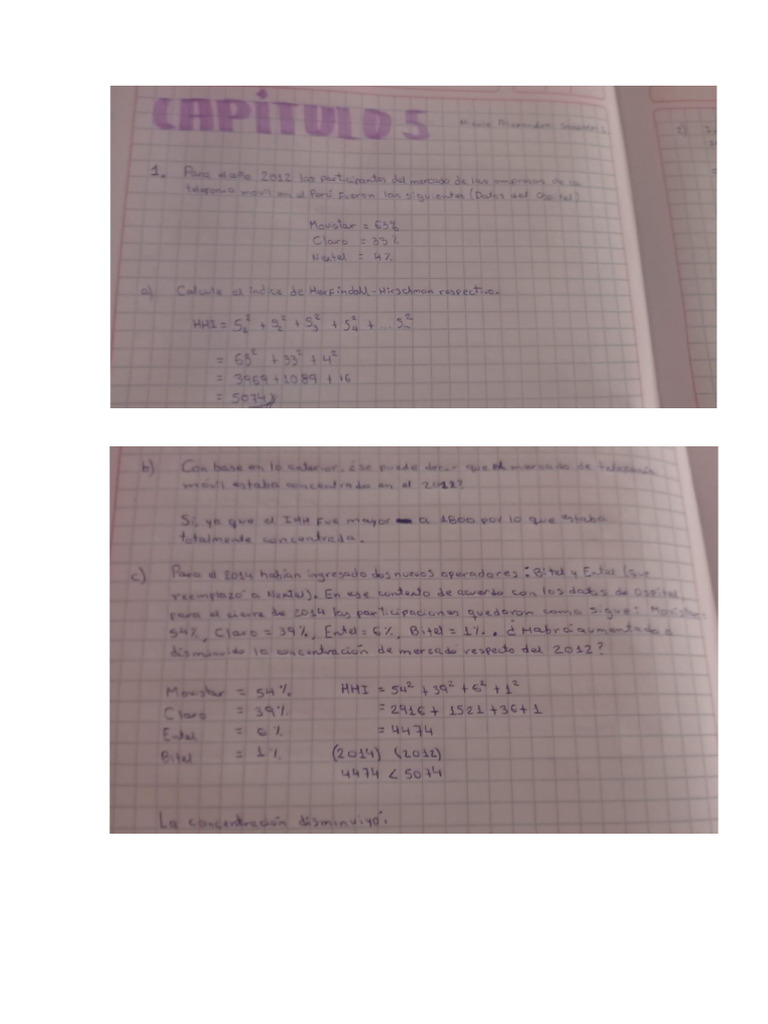 CAPÍTULO 5
1. Para el año 2012 las participantes del mercado de las empresas de la
telefonía móvil en el Perú fueron las siguientes (Datos del Osiptel)
Movistar = 63%
Claro = 33%
Nextel = 4%
a) Calcule el índice de Herfindahl-Hirschman respectivo.
HHI = S₁² + S₂² + S₃² + S₄² + ...S²
= 63² + 33² + 4²
= 3969 + 1089 + 16
= 5074
b) Con base en lo anterior, ¿se puede decir que el mercado de telefonía
móvil estaba concentrado en el 2012?
Sí, ya que el IHH fue mayor a 1800 por lo que estaba
totalmente concentrada.
c) Para el 2014 habían ingresado dos nuevos operadores: Bitel y Entel (que
reemplazó a Nextel). En ese contexto de acuerdo con los datos de Osiptel,
para el cierre de 2014 las participaciones quedaron como sigue: Movistar=
54%, Claro = 39%, Entel = 6%, Bitel = 1%. ¿Habrá aumentado o
disminuido la concentración de mercado respecto del 2012?
Movistar = 54% HHI = 54² + 39² + 6² + 1²
Claro = 39% = 2916 + 1521 + 36 + 1
Entel = 6% = 4474
Bitel = 1% (2014) (2012)
4474 < 5074
La concentración disminuyó.